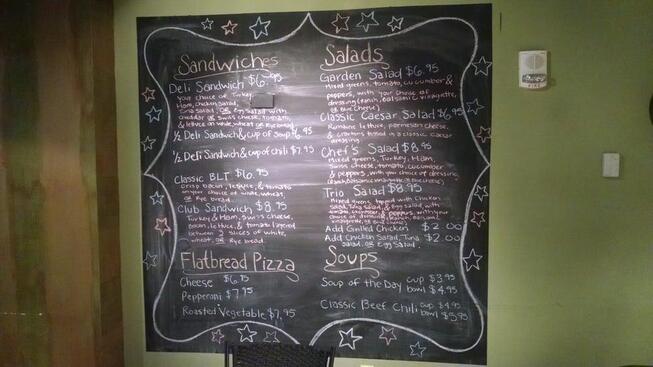 Sandwiches
Deli Sandwich $6.95
your choice of Turkey,
Ham, chicken salad,
Tuna salad, or Egg Salad with
cheddar or swiss cheese, tomato,
& lettuce on white, wheat or Rye bread
1/2 Deli Sandwich & cup of soup $6.95
1/2 Deli Sandwich & cup of chili $7.95
Classic BLT $6.95
crisp bacon, lettuce, & tomato
on your choice of white, wheat,
or Rye bread
Club Sandwich $8.95
Turkey & Ham, swiss cheese,
bacon, lettuce, & tomato layered
between 3 slices of white,
wheat, or Rye bread
Flatbread Pizza
Cheese $6.95
Pepperoni $7.95
Roasted Vegetable $7.95
Salads
Garden Salad $6.95
Mixed greens, tomato, cucumber &
peppers, with your choice of
dressing (ranch, balsamic vinaigrette,
or blue cheese)
Classic Caesar Salad $6.95
Romaine lettuce, parmesan cheese,
& croutons tossed in a classic caesar
dressing
Chef's Salad $8.95
Mixed greens, Turkey, Ham
Swiss cheese, tomato, cucumber
& peppers, with your choice of dressing
(ranch, balsamic vinaigrette, or blue cheese)
Trio Salad $8.95
Mixed greens topped with Chicken
salad, Tuna salad, & Egg salad with
tomato, cucumber & peppers, with your
choice of dressing (ranch, balsamic
vinaigrette, or blue cheese)
Add Grilled Chicken $2.00
Add Chicken Salad, Tuna $2.00
salad, or Egg Salad
Soups
Soup of the Day cup $3.95
bowl $4.95
Classic Beef Chili cup $4.95
bowl $5.95
FIRE